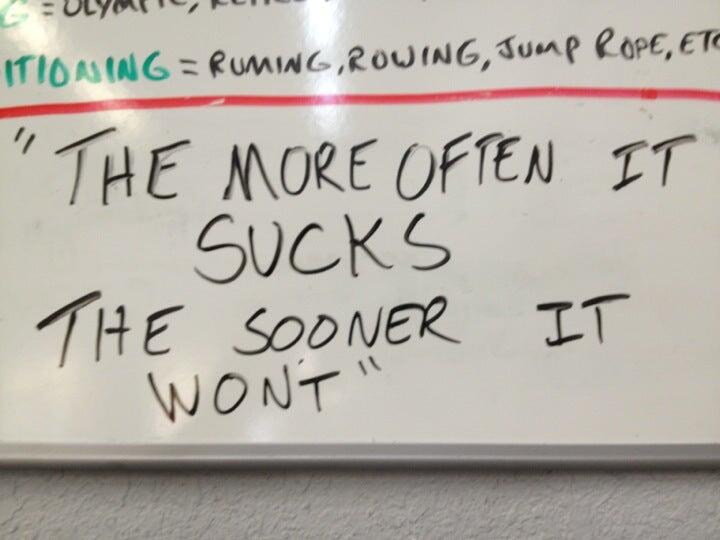 G = OLYMPIC,
ITIONING = RUNING, ROWING, JUMP ROPE, ETC
"THE MORE OFTEN IT
SUCKS
THE SOONER IT
WONT"